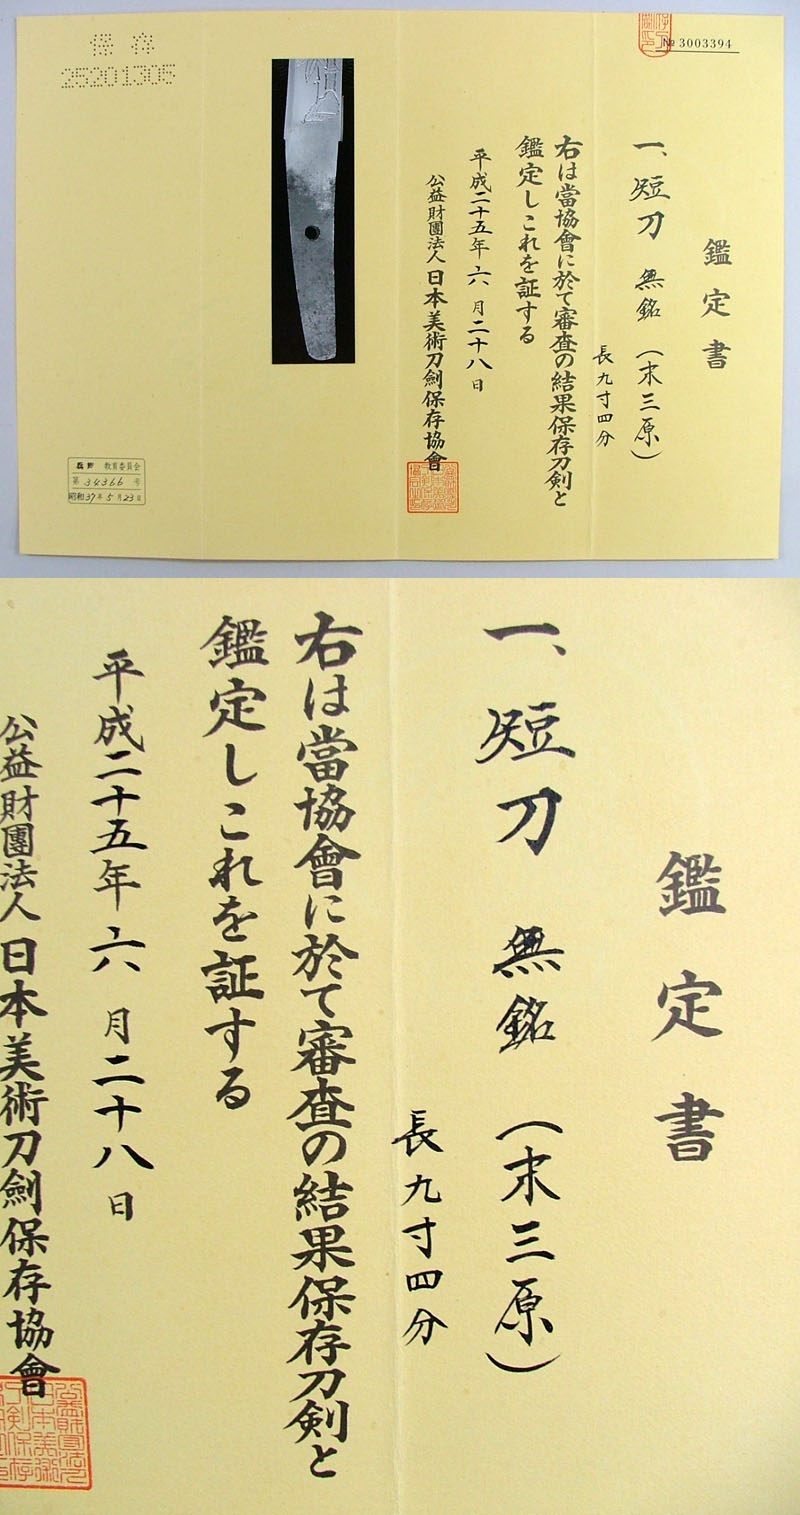 № 3003394
鑑定書
一、短刀 無銘 (末三原)
長九寸四分
右は當協會に於て審査の結果保存刀剣と
鑑定しこれを証する
平成二十五年六月二十八日
公益財團法人 日本美術刀劍保存協會
保存
25201305
教育委員会
第 34366 号
昭和37年5月23日
鑑定書
一、短刀 無銘 (末三原)
長九寸四分
右は當協會に於て審査の結果保存刀剣と
鑑定しこれを証する
平成二十五年六月二十八日
公益財團法人 日本美術刀劍保存協會